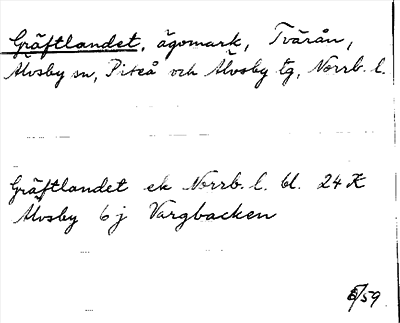 Gräftlandet, ägomark, Tvärån,
Älvsby sn, Piteå och Älvsby tg, Norrb. l.
Gräftlandet ek Norrb. l. bl. 24 K
Älvsby 6 j Vargbacken
/59